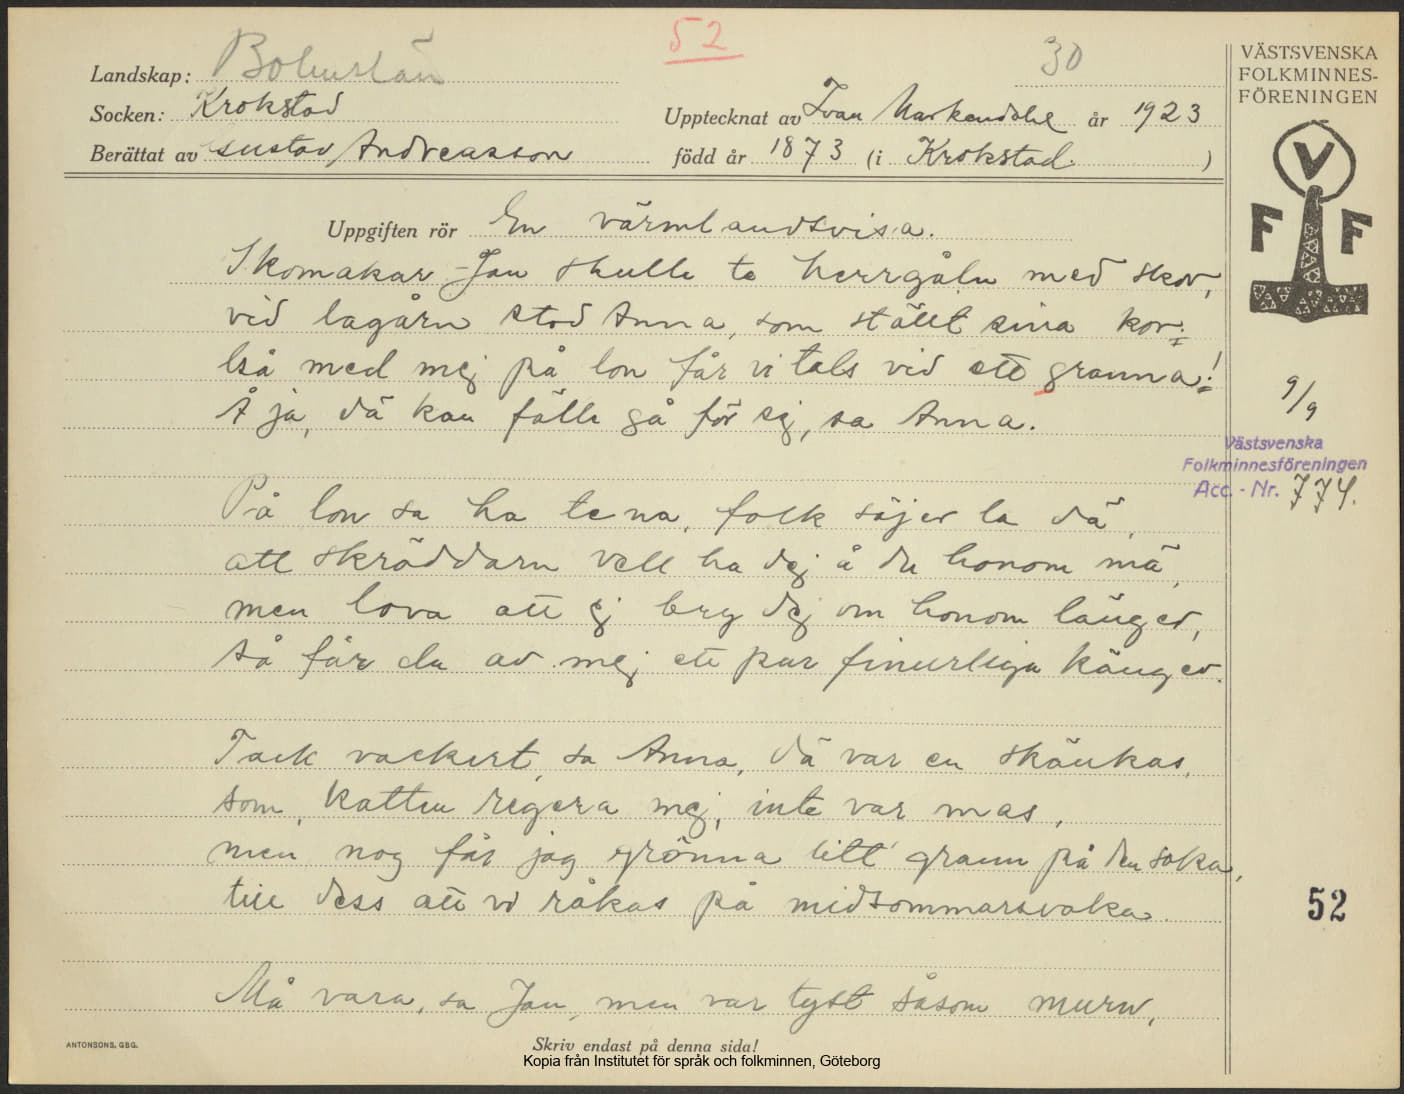 52
30
Landskap: Bohuslän
Socken: Krokstad
Upptecknat av Ivan Markendahl år 1923
Berättat av Gustav Andreasson född år 1873 (i Krokstad. )
VÄSTSVENSKA
FOLKMINNES-
FÖRENINGEN
V
F F
Uppgiften rör En värmlandsvisa.
Skomakar-Jan skulle te herrgåln med skor,
vid lagårn stod Anna, som ställt sina kor:
Iså med mej på lon får vi tals vid ett granna!
Å ja, dä kan fälle gå för sej, sa Anna.
9/9
Västsvenska
Folkminnesföreningen
Acc. - Nr. 774.
På lon sa ha te na, folk säjer la dä,
att skräddarn vell ha dej å du honom mä,
men lova att ej bry dej om honom länger,
så får du av mej ett par finurliga känger.
Tack vackert, sa Anna, dä var en skänkas,
som, katten regera mej, inte var mas,
men nog får jag grönna litt grann på den saka,
till dess att vi råkas på midsommarsvaka.
52
Må vara, sa Jan, men var tyst såsom murn,
ANTONSONS, GBG.
Skriv endast på denna sida!
Kopia från Institutet för språk och folkminnen, Göteborg